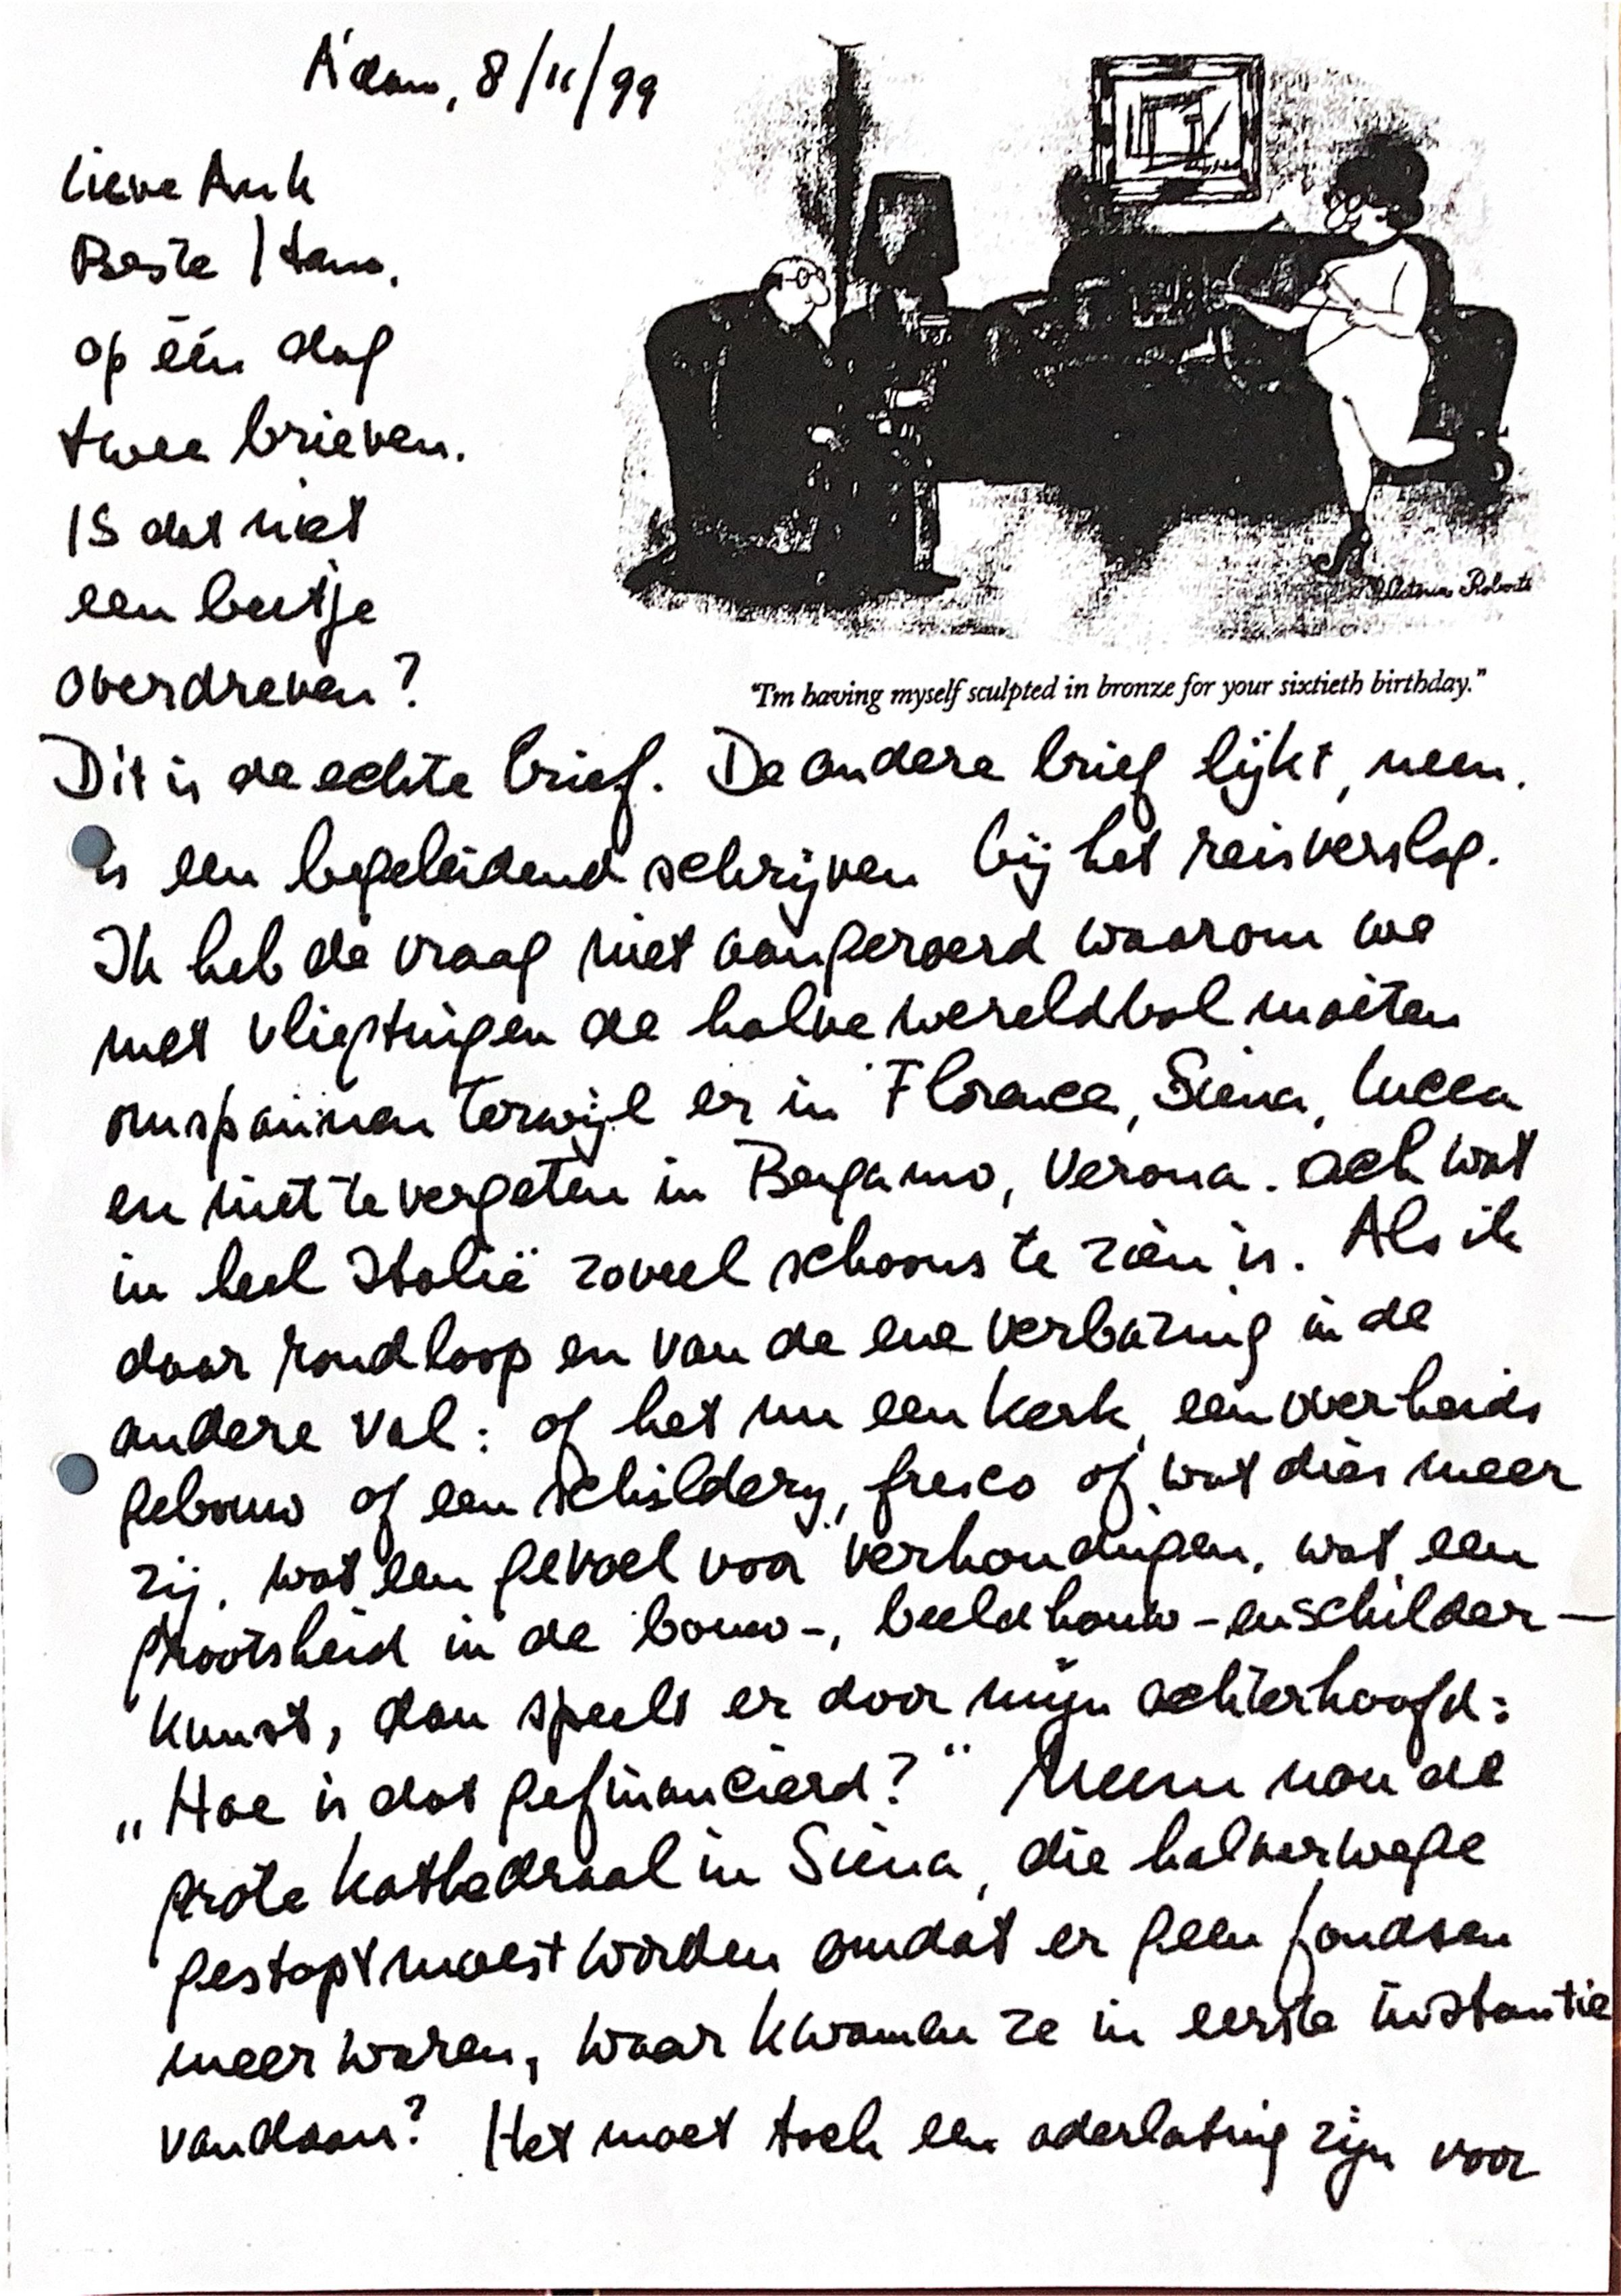 A'dam, 8/11/99
Lieve Ank
Beste Ham.
op één dag
twee brieven.
IS dat niet
een beetje
overdreven?
Victoria Roberts
"I'm having myself sculpted in bronze for your sixtieth birthday."
Dit is de echte brief. De andere brief lijkt, neen.
is een begeleidend schrijven bij het reisverslag.
Ik heb de vraag niet aangeroerd waarom we
met vliegtuigen de halve wereldbol moeten
omspannen terwijl er in Florence, Siena, Lucca
en niet te vergeten in Bergamo, Verona. ach wat
in heel Italië zoveel schoons te zien is. Als ik
daar rondloop en van de ene verbazing in de
andere val: of het nu een kerk, een overheids
gebouw of een schildery, fresco of wat dies meer
zij. wat een gevoel voor verhoudingen, wat een
grootsheid in de bouw-, beeldhouw-en schilder-
kunst, dan speelt er door mijn achterhoofd:
„Hoe is dat gefinancierd?" Neem nou de
grote kathedraal in Siena, die halverwege
gestopt moest worden omdat er geen fondsen
meer waren, waar kwamen ze in eerste instantie
vandaan? Het moet toch een aderlating zijn voor